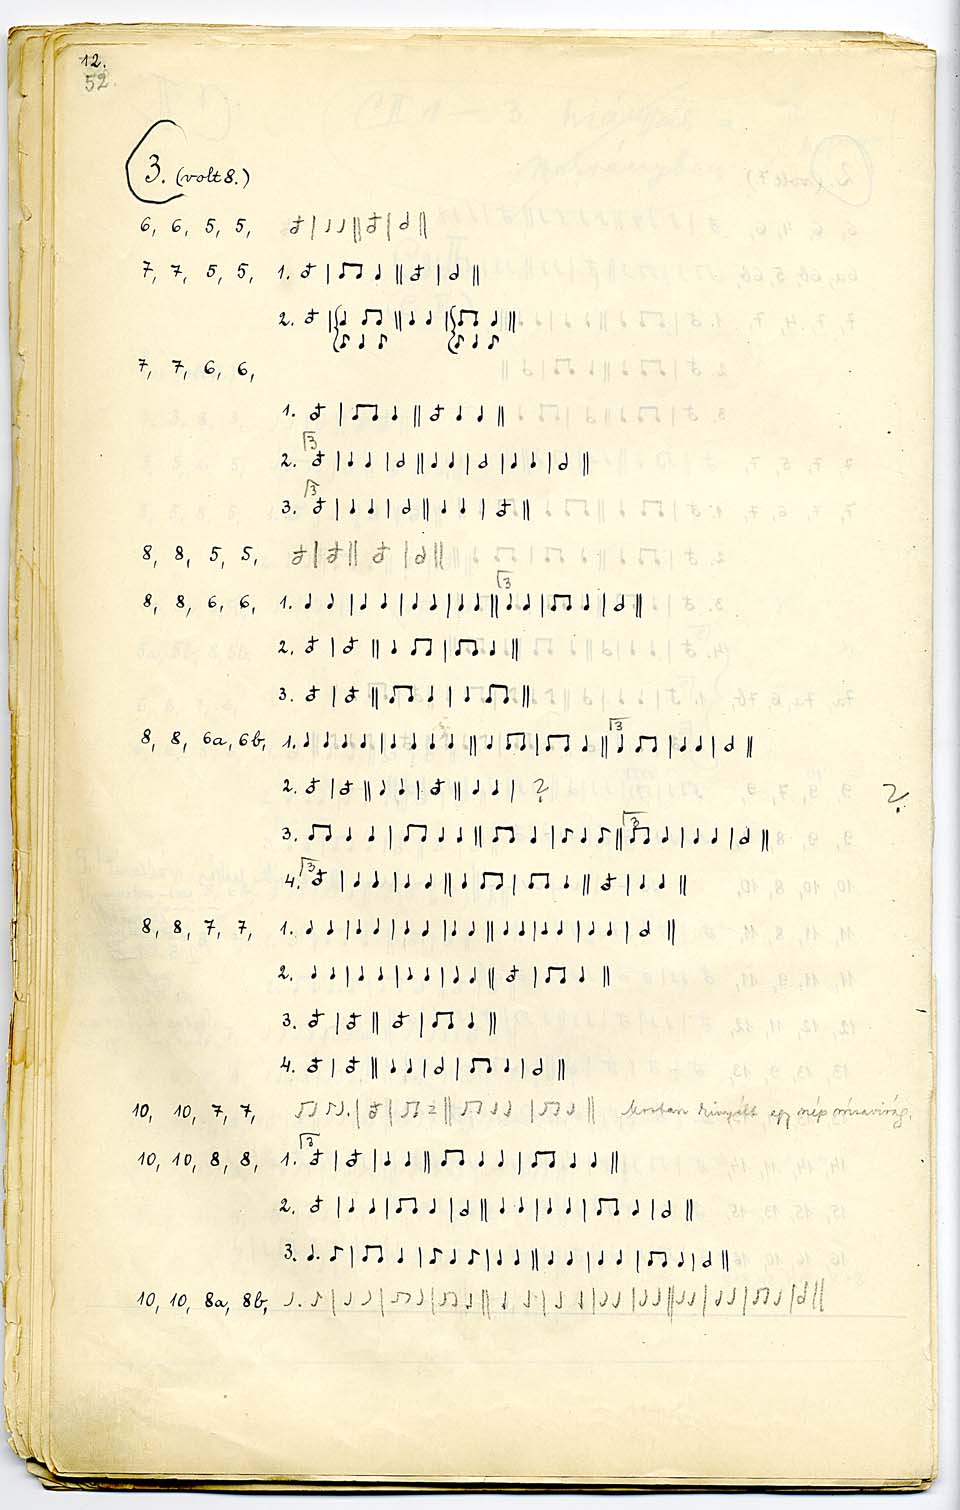 12.
52.
3. (volt 8.)
6, 6, 5, 5,
7, 7, 5, 5, 1.
2.
7, 7, 6, 6,
1.
2. 3
3. 3
8, 8, 5, 5,
8, 8, 6, 6, 1. 3
2.
3.
8, 8, 6a, 6b, 1. 3
2. ? ?
3. 3
4. 3
8, 8, 7, 7, 1.
2.
3.
4.
10, 10, 7, 7, egy szép
10, 10, 8, 8, 1. 3
2.
3.
10, 10, 8a, 8b,